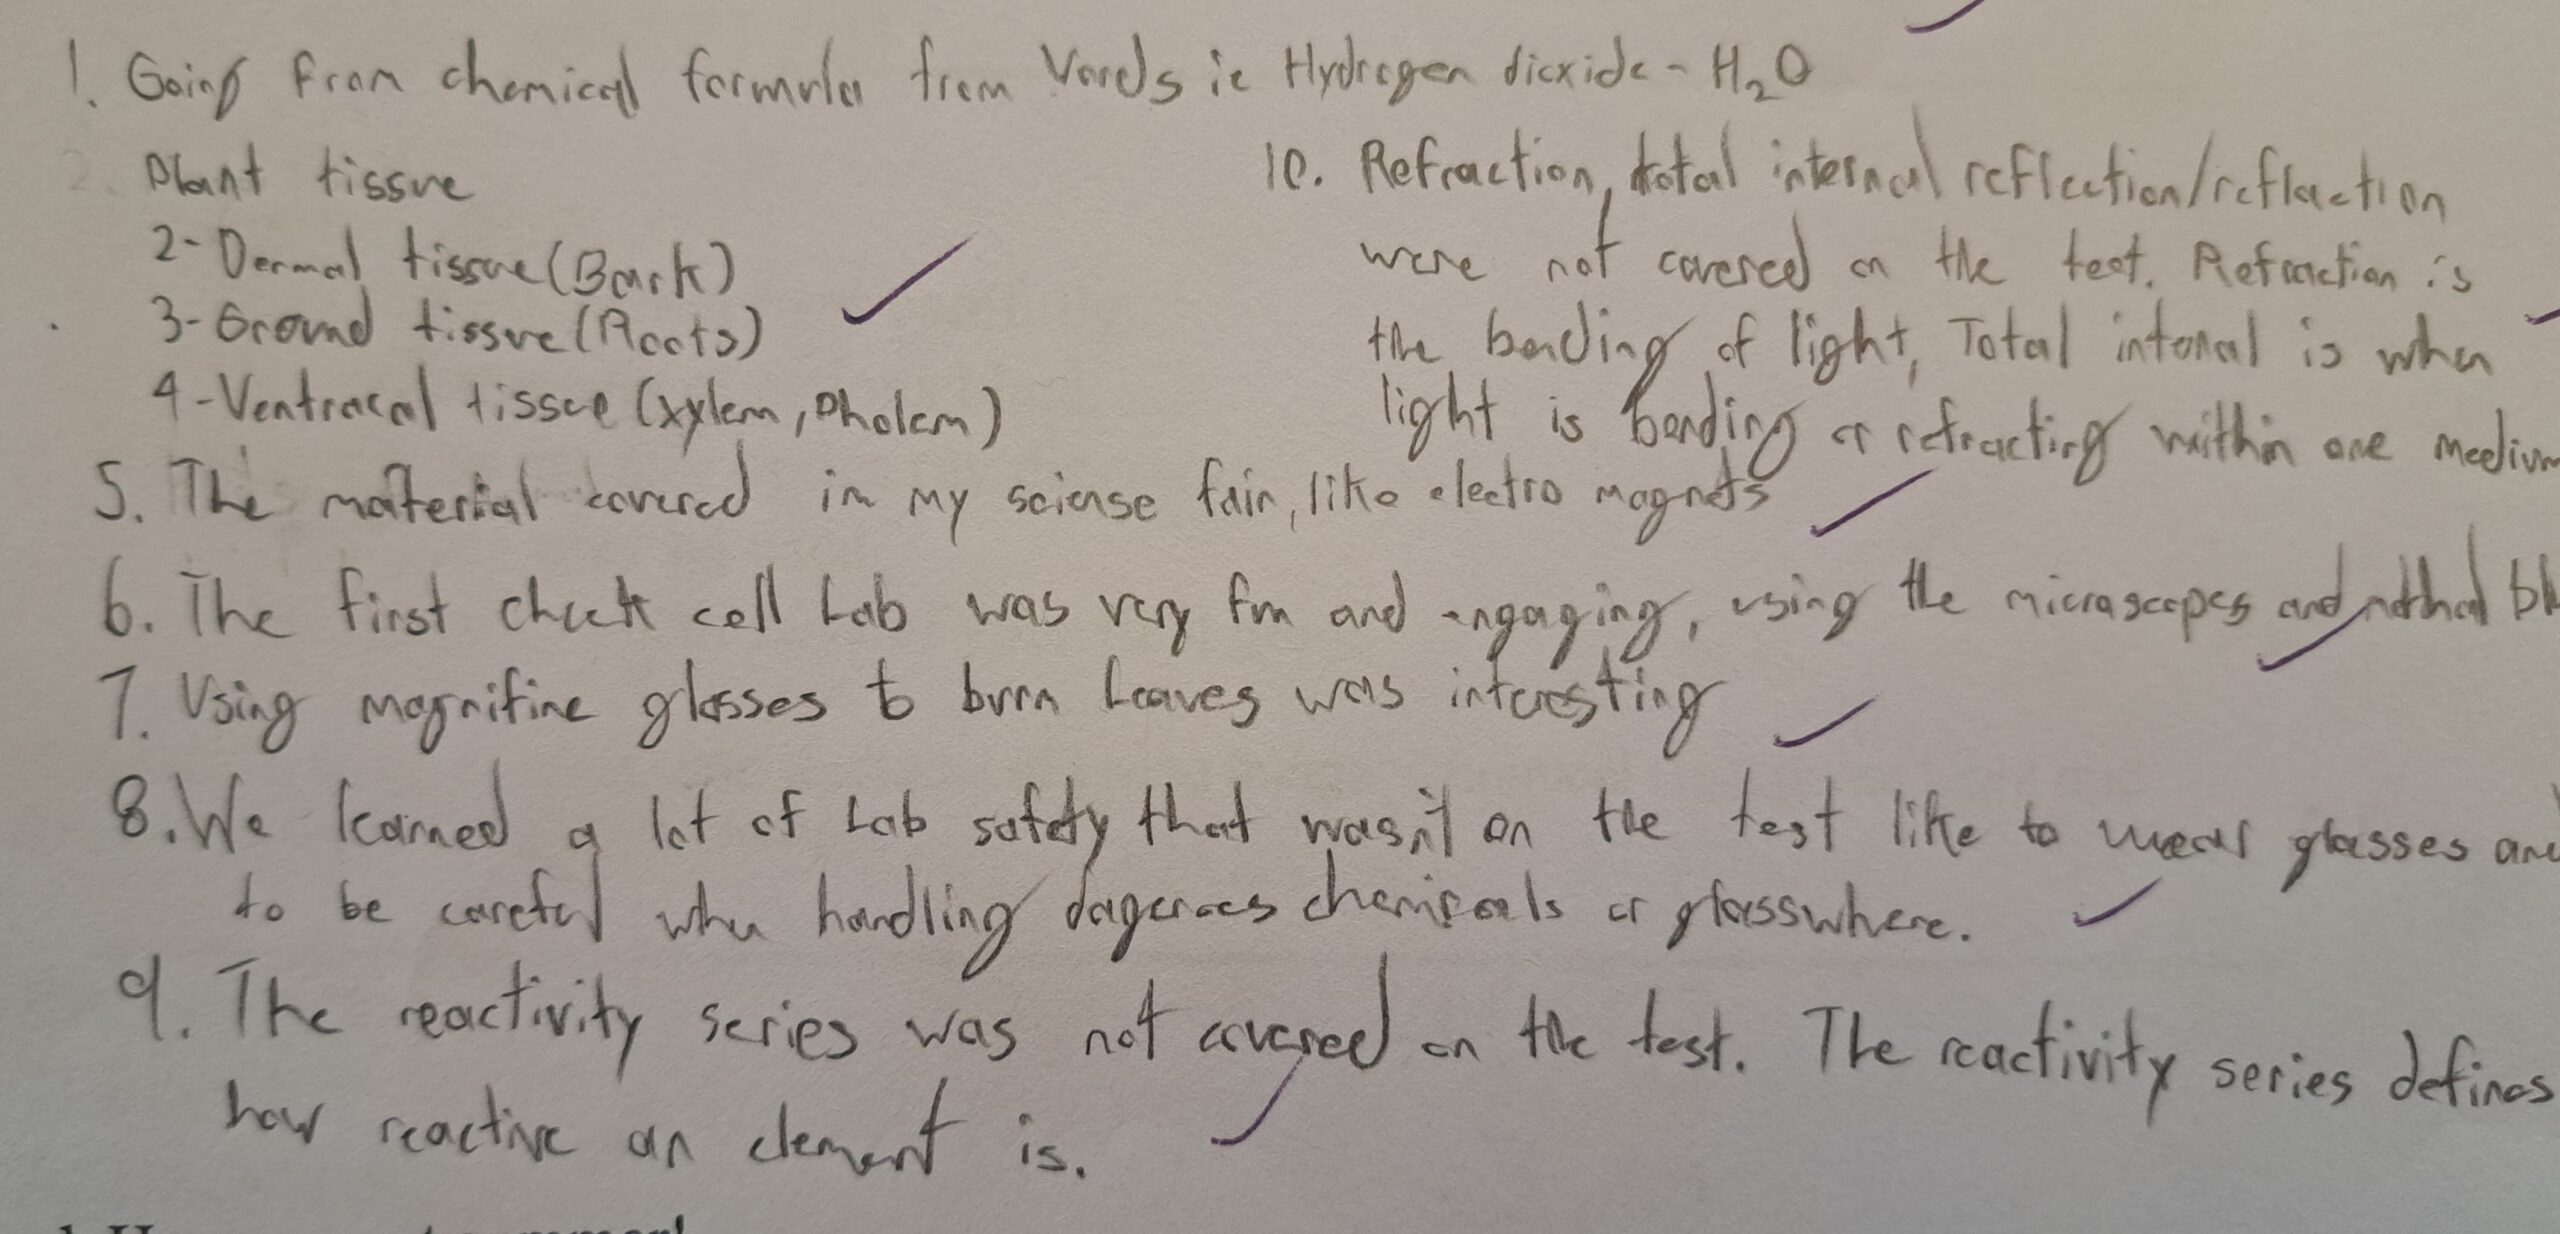 1. Going from chemical formula from Words ie Hydrogen dioxide - H₂O
Plant tissue
2- Dermal tissue (Bark)
3- Ground tissue (Roots)
4- Ventracal tissue (xylem, Pholem)
5. The material covered in my sciense fair, like electro magnets
6. The first cheek cell Lab was very fun and engaging, using the microscopes and
7. Using magnifine glasses to burn Leaves was interesting
8. We learned a lot of Lab safety that wasn't on the test like to wear glasses and
to be careful when handling dagerous chemicals or glasswhere.
9. The reactivity series was not covered on the test. The reactivity series defines
how reactive an element is.
10. Refraction, total internal reflection/reflaction
were not covered on the test. Refraction is
the bending of light, Total internal is when
light is bending or refracting within one medium